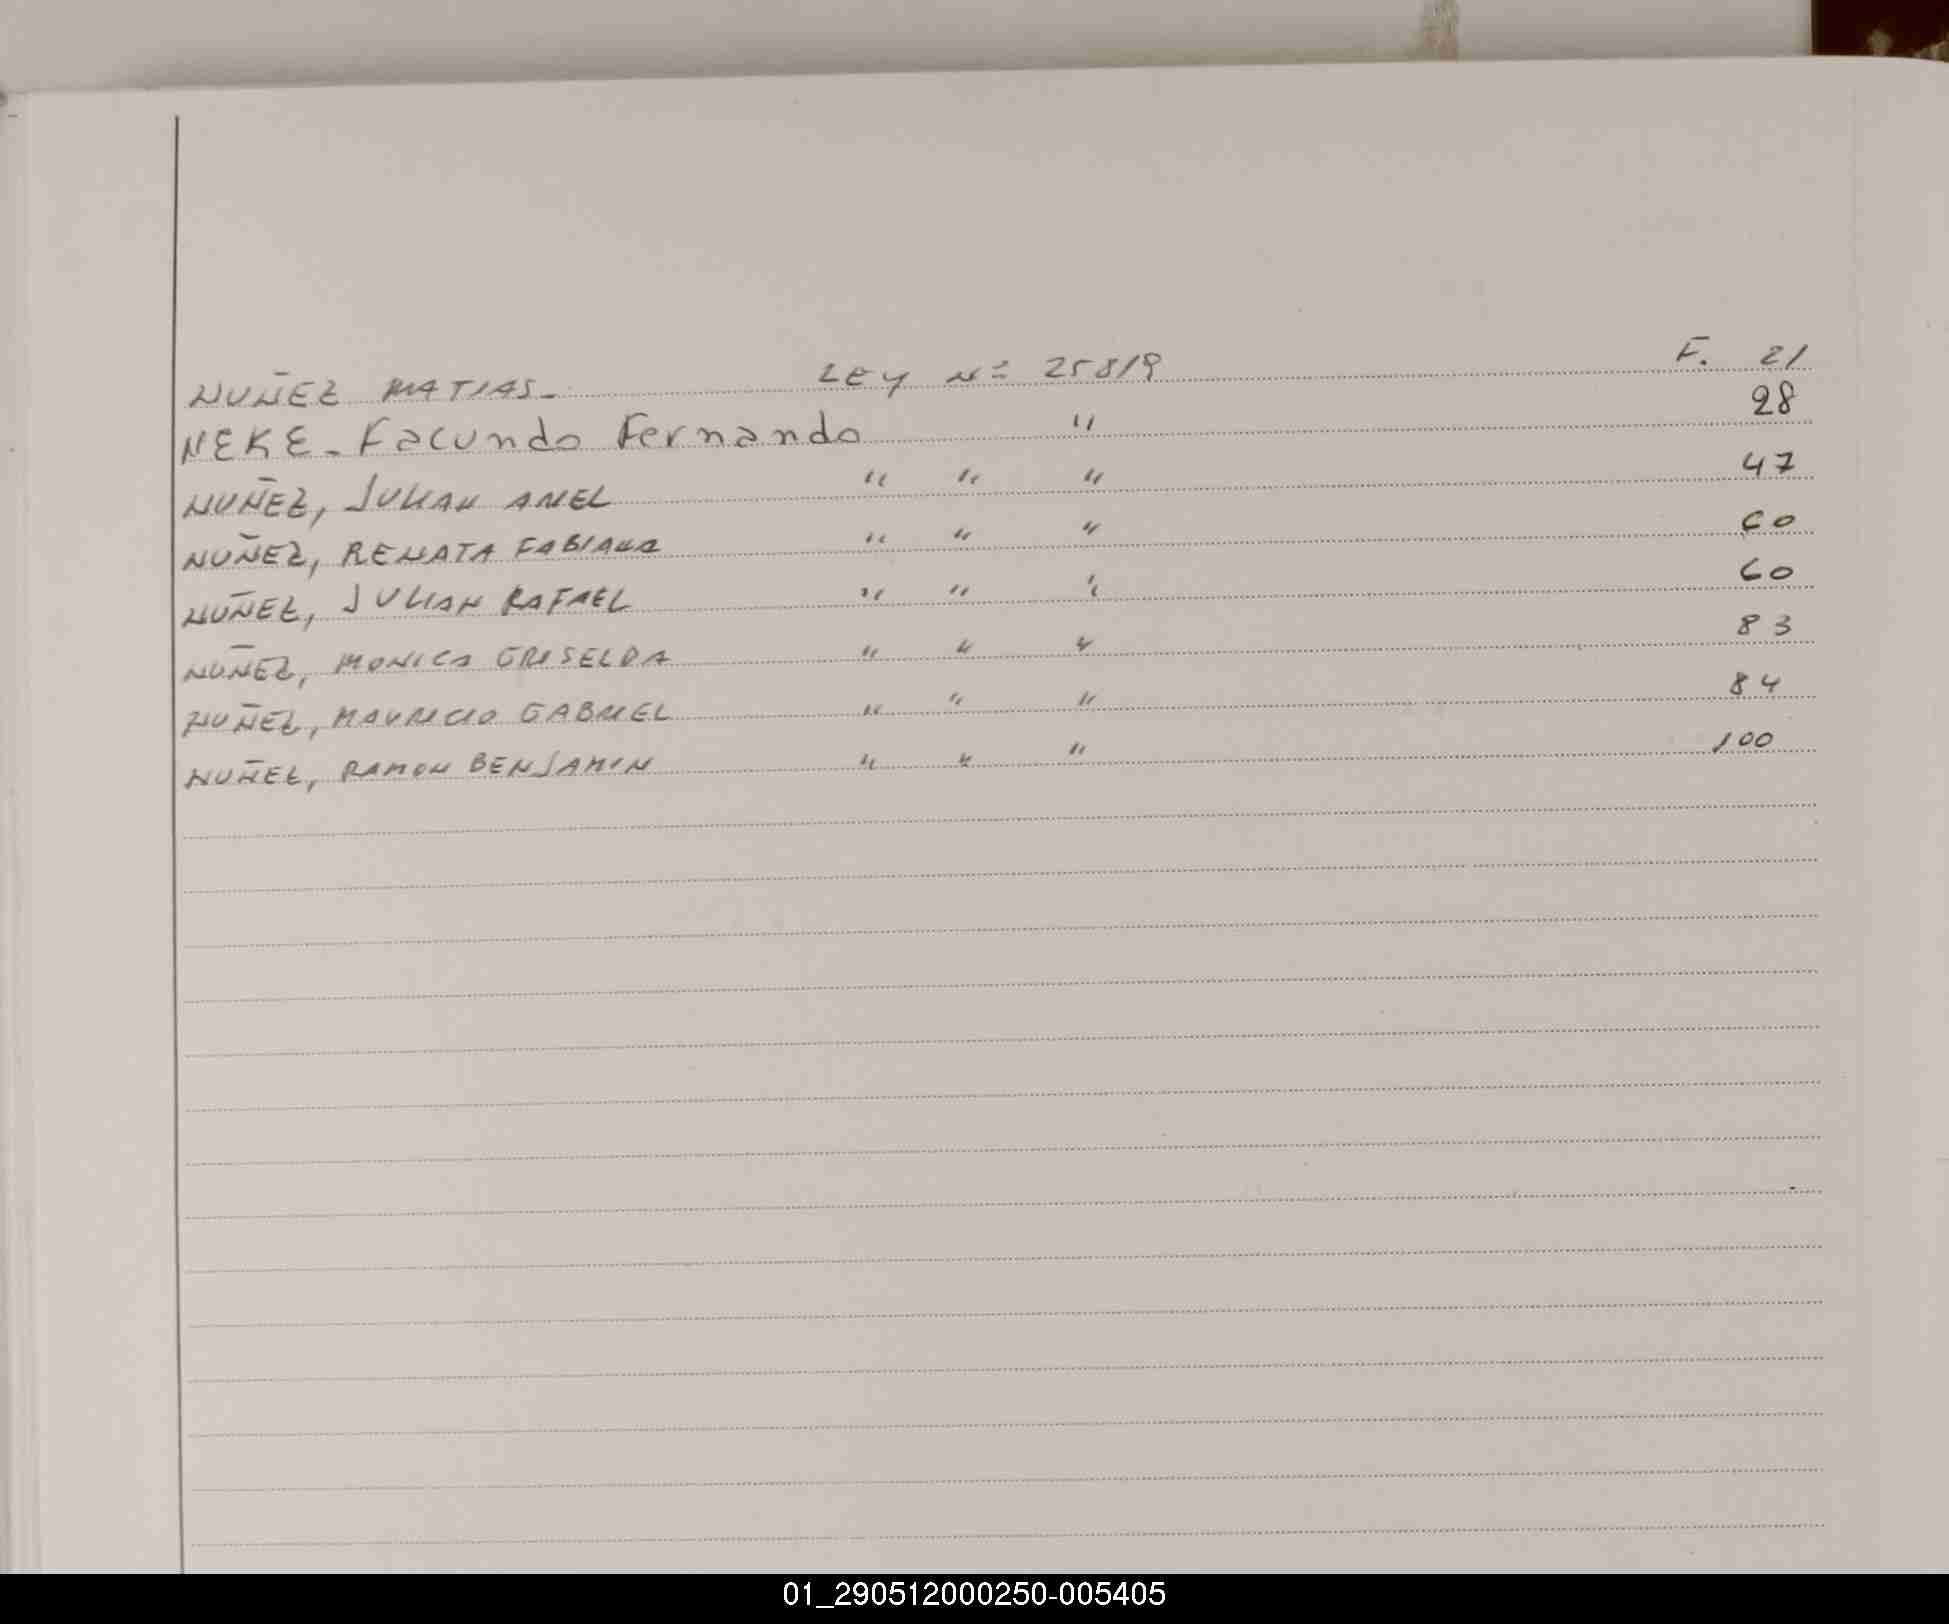 NUÑEZ MATIAS. LEY Nº 25819 F. 21
NEKE. Facundo Fernando " 28
NUÑEZ, JULIAN ARIEL " " " 47
NUÑEZ, RENATA FABIANA " " " 60
NUÑEZ, JULIAN RAFAEL " " " 60
NUÑEZ, MONICA GRISELDA " " " 83
NUÑEZ, MAURICIO GABRIEL " " " 84
NUÑEZ, RAMON BENJAMIN " " " 100
01_290512000250-005405